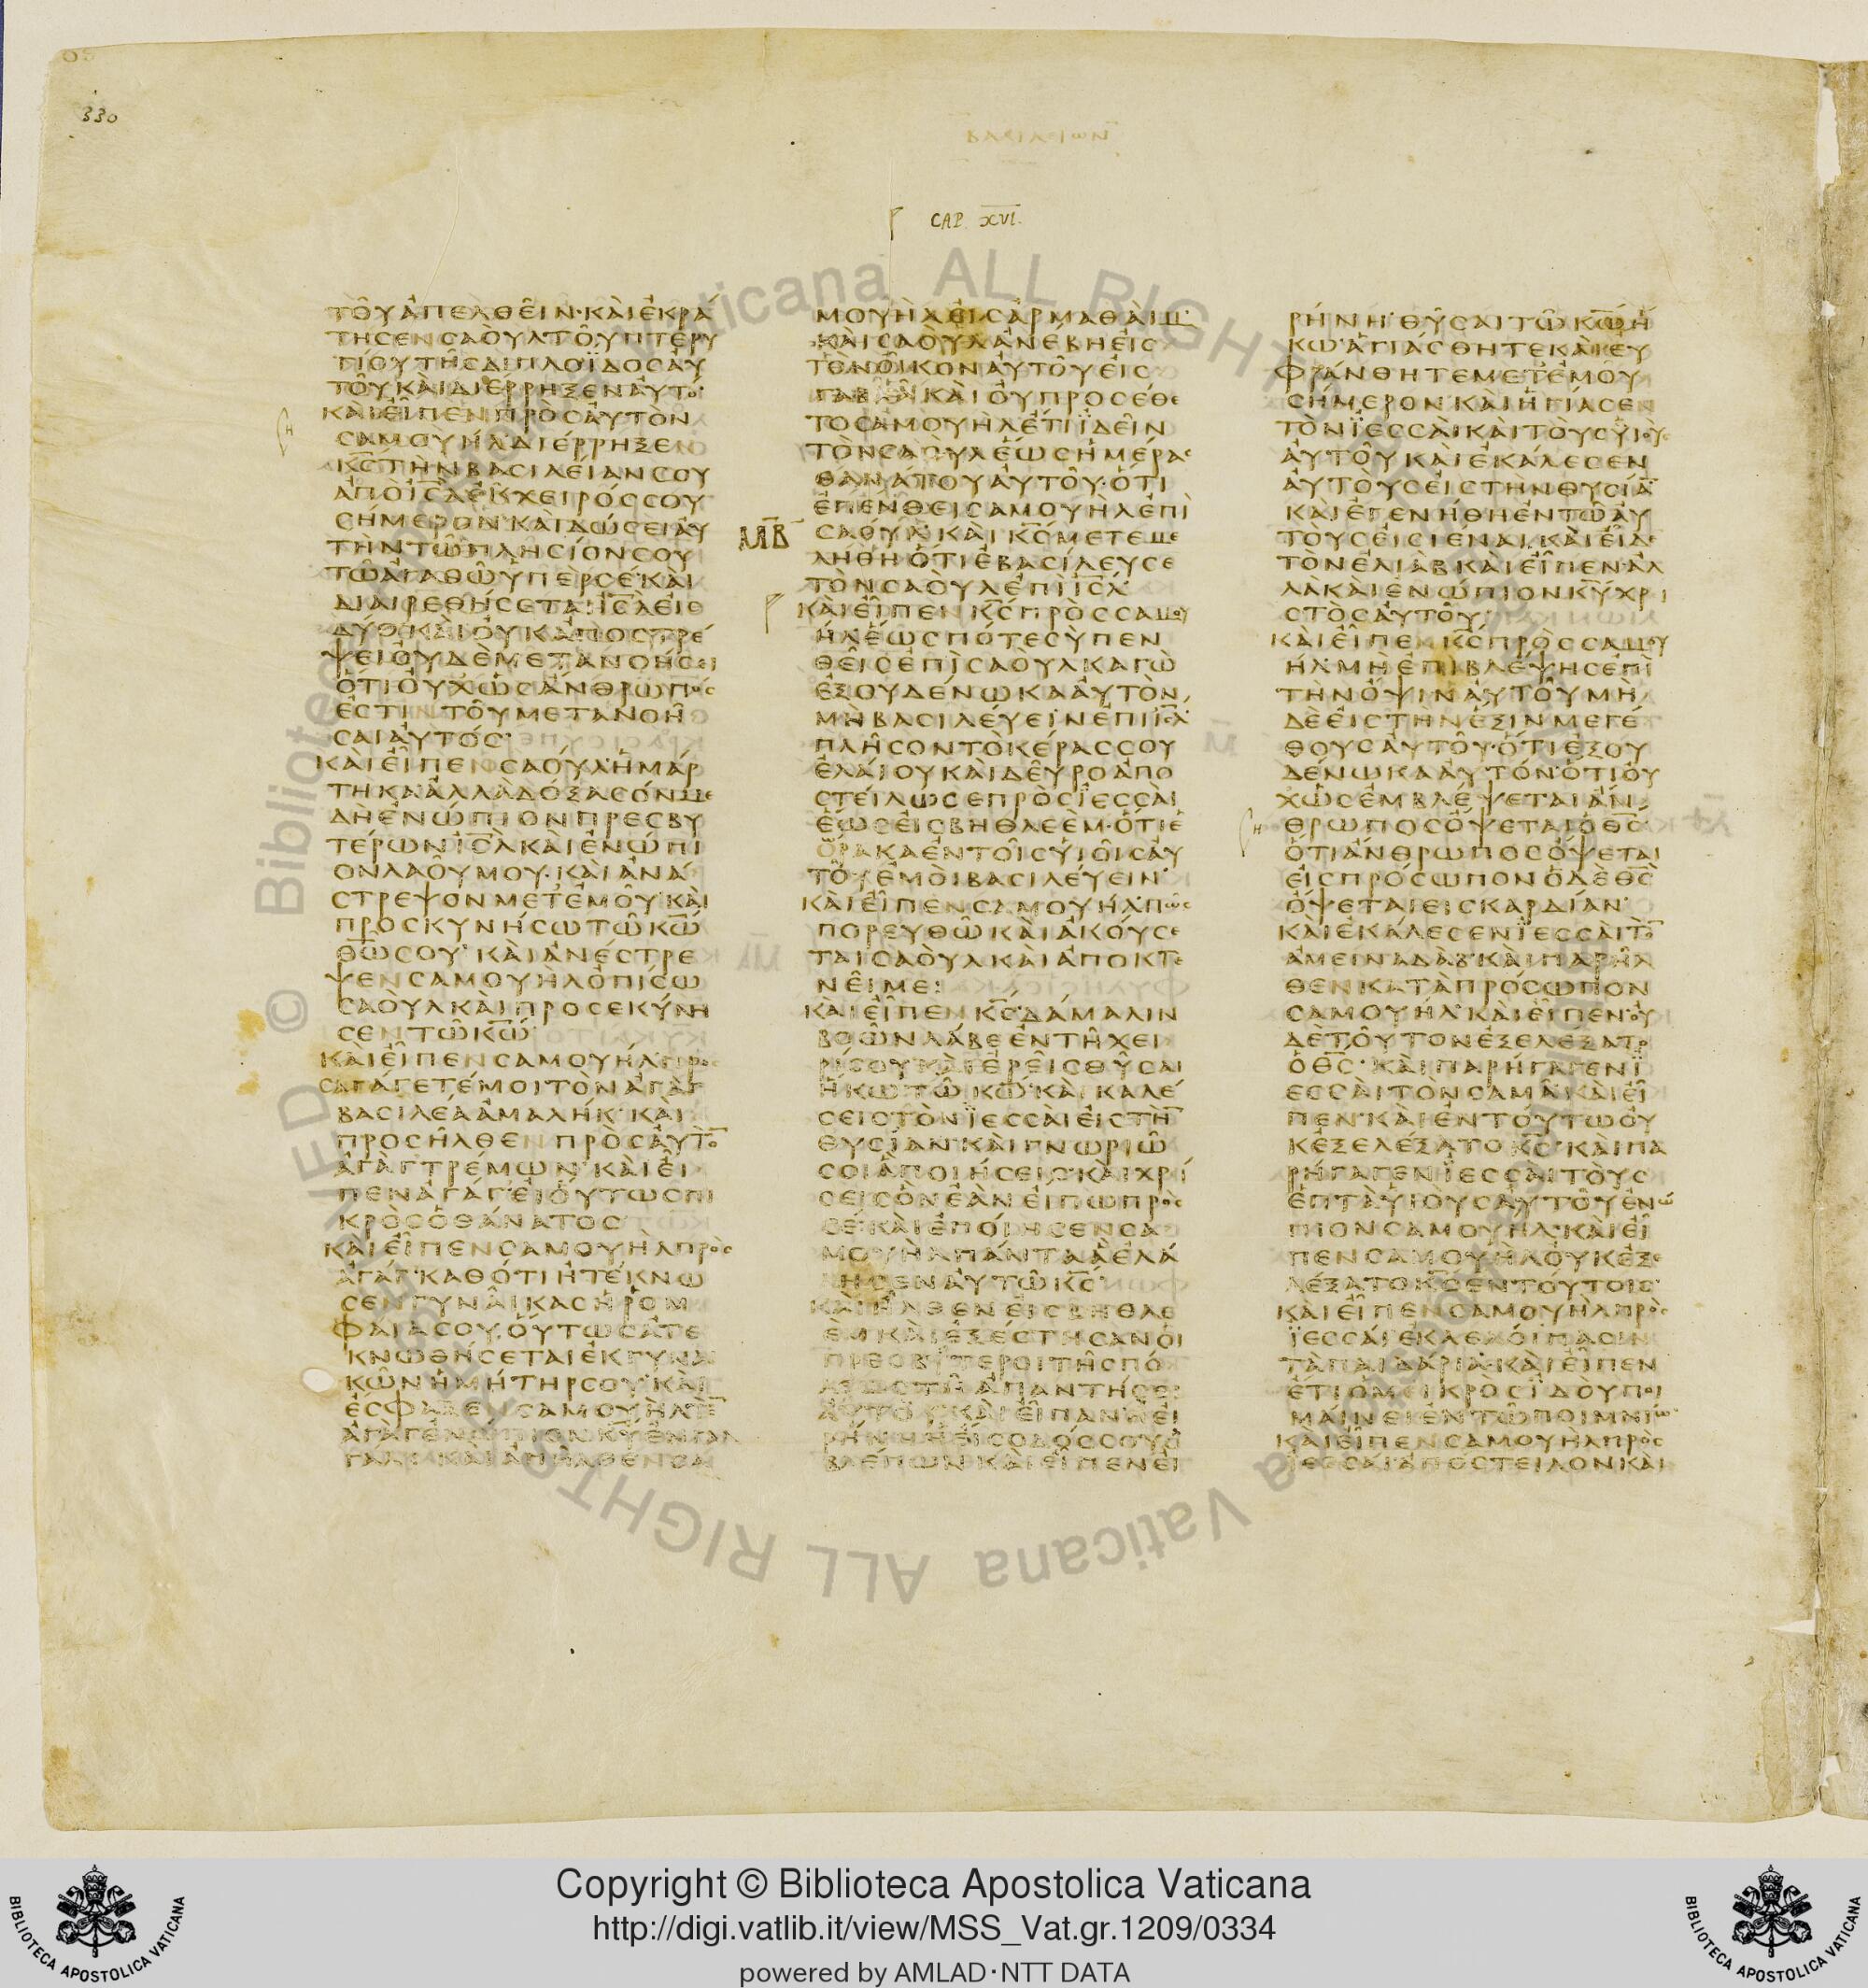 330
ΒΑCΙΛΕΙΩΝ
CAP. XVI.
ΤΟΥΑΠΕΛΘΕΙΝ·ΚΑΙΕΚΡΑ
ΤΗCΕΝCΑΟΥΛΤΟΥΠΤΕΡΥ
ΓΙΟΥΤΗCΔΙΠΛΟΪΔΟCΑΥ
ΤΟΥΚΑΙΔΙΕΡΡΗΞΕΝΑΥΤΟ·
ΚΑΙΕΙΠΕΝΠΡΟCΑΥΤΟΝ
CΑΜΟΥΗΛ·ΔΙΕΡΡΗΞΕΝ
Κ̅C̅ΤΗΝΒΑCΙΛΕΙΑΝCΟΥ
ΑΠΟΙ̅C̅Λ̅ΕΚΧΕΙΡΟCCΟΥ
CΗΜΕΡΟΝ·ΚΑΙΔΩCΕΙΑΥ
ΤΗΝΤΩΠΛΗCΙΟΝCΟΥ
ΤΩΑΓΑΘΩΥΠΕΡCΕ·ΚΑΙ
ΔΙΑΙΡΕΘΗCΕΤΑΙΙ̅C̅Λ̅ΕΙC
ΔΥΟ·ΚΑΙΟΥΚΑΠΟCΤΡΕ
ΨΕΙΟΥΔΕΜΕΤΑΝΟΗCΕΙ
ΟΤΙΟΥΧΩCΑΝΘΡΩΠΟC
ΕCΤΙΝΤΟΥΜΕΤΑΝΟΗ
CΑΙΑΥΤΟC·
ΚΑΙΕΙΠΕΝCΑΟΥΛ·ΗΜΑΡ
ΤΗΚΑΑΛΛΑΔΟΞΑCΟΝΜΕ
ΔΗΕΝΩΠΙΟΝΠΡΕCΒΥ
ΤΕΡΩΝΙ̅C̅Λ̅ΚΑΙΕΝΩΠΙ
ΟΝΛΑΟΥΜΟΥ·ΚΑΙΑΝΑ
CΤΡΕΨΟΝΜΕΤΕΜΟΥ·ΚΑΙ
ΠΡΟCΚΥΝΗCΩΤΩΚ̅Ω̅
Θ̅Ω̅CΟΥ·ΚΑΙΑΝΕCΤΡΕ
ΨΕΝCΑΜΟΥΗΛΟΠΙCΩ
CΑΟΥΛΚΑΙΠΡΟCΕΚΥΝΗ
CΕΝΤΩΚ̅Ω̅·
ΚΑΙΕΙΠΕΝCΑΜΟΥΗΛΠΡΟ
CΑΓΑΓΕΤΕΜΟΙΤΟΝΑΓΑΓ
ΒΑCΙΛΕΑΑΜΑΛΗΚ·ΚΑΙ
ΠΡΟCΗΛΘΕΝΠΡΟCΑΥΤΟ̅
ΑΓΑΓΤΡΕΜΩΝ·ΚΑΙΕΙ
ΠΕΝΑΓΑΓΕΙΟΥΤΩCΠΙ
ΚΡΟCΟΘΑΝΑΤΟC
ΚΑΙΕΙΠΕΝCΑΜΟΥΗΛΠΡΟC
ΑΓΑΓ·ΚΑΘΟΤΙΗΤΕΚΝΩ
CΕΝΓΥΝΑΙΚΑCΗΡΟΜ
ΦΑΙΑCΟΥ·ΟΥΤΩCΑΤΕ
ΚΝΩΘΗCΕΤΑΙΕΚΓΥΝΑΙ
ΚΩΝΗΜΗΤΗΡCΟΥ·ΚΑΙ
ΕCΦΑΞΕΝCΑΜΟΥΗΛΤΟ̅
ΑΓΑΓΕΝΩΠΙΟΝΚ̅Υ̅ΕΝΓΑΛ
ΓΑΛ·ΚΑΙΑΠΗΛΘΕΝCΑ
ΜΟΥΗΛΕΙCΑΡΜΑΘΑΙΜ·
ΚΑΙCΑΟΥΛΑΝΕΒΗΕΙC
ΤΟΝΟΙΚΟΝΑΥΤΟΥΕΙC
ΓΑΒΑΑΚΑΙΟΥΠΡΟCΕΘΕ
ΤΟCΑΜΟΥΗΛΕΤΙΪΔΕΙΝ
ΤΟΝCΑΟΥΛΕΩCΗΜΕΡΑC
ΘΑΝΑΤΟΥΑΥΤΟΥ·ΟΤΙ
ΕΠΕΝΘΕΙCΑΜΟΥΗΛΕΠΙ
Μ̅Β̅
CΑΟΥΛ·ΚΑΙΚ̅C̅ΜΕΤΕΜΕ
ΛΗΘΗΟΤΙΕΒΑCΙΛΕΥCΕ
ΤΟΝCΑΟΥΛΕΠΙΙ̅C̅Λ̅
ΚΑΙΕΙΠΕΝΚ̅C̅ΠΡΟCCΑΜΟΥ
ΗΛΕΩCΠΟΤΕCΥΠΕΝ
ΘΕΙCΕΠΙCΑΟΥΛΚΑΓΩ
ΕΞΟΥΔΕΝΩΚΑΑΥΤΟΝ
ΜΗΒΑCΙΛΕΥΕΙΝΕΠΙΙ̅C̅Λ̅
ΠΛΗCΟΝΤΟΚΕΡΑCCΟΥ
ΕΛΑΙΟΥΚΑΙΔΕΥΡΟΑΠΟ
CΤΕΙΛΩCΕΠΡΟCΪΕCCΑΙ
ΕΩCΕΙCΒΗΘΛΕΕΜ·ΟΤΙΕ
ΟΡΑΚΑΕΝΤΟΙCΥΙΟΙCΑΥ
ΤΟΥΕΜΟΙΒΑCΙΛΕΥΕΙΝ·
ΚΑΙΕΙΠΕΝCΑΜΟΥΗΛ·ΠΩC
ΠΟΡΕΥΘΩΚΑΙΑΚΟΥCΕ
ΤΑΙCΑΟΥΛΚΑΙΑΠΟΚΤΕ
ΝΕΙΜΕ:
ΚΑΙΕΙΠΕΝΚ̅C̅·ΔΑΜΑΛΙΝ
ΒΟΩΝΛΑΒΕΕΝΤΗΧΕΙ
ΡΙCΟΥΚΑΙΕΡΕΙCΘΥCΑΙ
ΗΚΩΤΩΚ̅Ω̅·ΚΑΙΚΑΛΕ
CΕΙCΤΟΝΪΕCCΑΙΕΙCΤΗ̅
ΘΥCΙΑΝ·ΚΑΙΓΝΩΡΙΩ
CΟΙΑΠΟΙΗCΕΙC·ΚΑΙΧΡΙ
CΕΙCΟΝΕΑΝΕΙΠΩΠΡΟC
CΕ·ΚΑΙΕΠΟΙΗCΕΝCΑ
ΜΟΥΗΛΠΑΝΤΑΑΕΛΑ
ΛΗCΕΝΑΥΤΩΚ̅C̅·
ΚΑΙΗΛΘΕΝΕΙCΒΗΘΛΕ
ΕΜΚΑΙΕΞΕCΤΗCΑΝΟΙ
ΠΡΕCΒΥΤΕΡΟΙΤΗCΠΟ
ΛΕΩCΤΗΑΠΑΝΤΗCΕΙ
ΑΥΤΟΥΚΑΙΕΙΠΑΝ·ΕΙ
ΡΗΝΗΗΕΙCΟΔΟCCΟΥΟ
ΒΛΕΠΩΝ·ΚΑΙΕΙΠΕΝΕΙ
ΡΗΝΗ·ΘΥCΑΙΤΩΚ̅Ω̅Η
ΚΩ·ΑΓΙΑCΘΗΤΕΚΑΙΕΥ
ΦΡΑΝΘΗΤΕΜΕΤΕΜΟΥ
CΗΜΕΡΟΝ·ΚΑΙΗΓΙΑCΕΝ
ΤΟΝΪΕCCΑΙΚΑΙΤΟΥCΥΙΟΥC
ΑΥΤΟΥΚΑΙΕΚΑΛΕCΕΝ
ΑΥΤΟΥCΕΙCΤΗΝΘΥCΙΑ̅
ΚΑΙΕΓΕΝΗΘΗΕΝΤΩΑΥ
ΤΟΥCΕΙCΙΕΝΑΙ·ΚΑΙΕΙΔΕ
ΤΟΝΕΛΙΑΒΚΑΙΕΙΠΕΝ·ΑΛ
ΛΑΚΑΙΕΝΩΠΙΟΝΚ̅Υ̅ΧΡΙ
CΤΟCΑΥΤΟΥ·
ΚΑΙΕΙΠΕΝΚ̅C̅ΠΡΟCCΑΜΟΥ
ΗΛ·ΜΗΕΠΙΒΛΕΨΗCΕΠΙ
ΤΗΝΟΨΙΝΑΥΤΟΥΜΗ
ΔΕΕΙCΤΗΝΕΞΙΝΜΕΓΕ
ΘΟΥCΑΥΤΟΥ·ΟΤΙΕΞΟΥ
ΔΕΝΩΚΑΑΥΤΟΝ·ΟΤΙΟΥ
ΧΩCΕΜΒΛΕΨΕΤΑΙΑΝ
ΘΡΩΠΟCΟΨΕΤΑΙΟΘ̅C̅·
ΟΤΙΑΝΘΡΩΠΟCΟΨΕΤΑΙ
ΕΙCΠΡΟCΩΠΟΝΟΔΕΘ̅C̅
ΟΨΕΤΑΙΕΙCΚΑΡΔΙΑΝ·
ΚΑΙΕΚΑΛΕCΕΝΪΕCCΑΙΤΟ̅
ΑΜΕΙΝΑΔΑΒ·ΚΑΙΠΑΡΗΛ
ΘΕΝΚΑΤΑΠΡΟCΩΠΟΝ
CΑΜΟΥΗΛ·ΚΑΙΕΙΠΕΝ·ΟΥ
ΔΕΤΟΥΤΟΝΕΞΕΛΕΞΑΤΟ
ΟΘ̅C̅·ΚΑΙΠΑΡΗΓΑΓΕΝΪ
ΕCCΑΙΤΟΝCΑΜΑ·ΚΑΙΕΙ
ΠΕΝ·ΚΑΙΕΝΤΟΥΤΩΟΥ
ΚΕΞΕΛΕΞΑΤΟΚ̅C̅·ΚΑΙΠΑ
ΡΗΓΑΓΕΝΪΕCCΑΙΤΟΥC
ΕΠΤΑΥΙΟΥCΑΥΤΟΥΕΝΩ
ΠΙΟΝCΑΜΟΥΗΛ·ΚΑΙΕΙ
ΠΕΝCΑΜΟΥΗΛΟΥΚΕΞΕ
ΛΕΞΑΤΟΚ̅C̅ΕΝΤΟΥΤΟΙC·
ΚΑΙΕΙΠΕΝCΑΜΟΥΗΛΠΡΟC
ΪΕCCΑΙ·ΕΚΛΕΛΟΙΠΑCΙΝ
ΤΑΠΑΙΔΑΡΙΑ·ΚΑΙΕΙΠΕΝ
ΕΤΙΟΜΕΙΚΡΟCΙΔΟΥΠΟΙ
ΜΑΙΝΕΙΕΝΤΩΠΟΙΜΝΙΩ·
ΚΑΙΕΙΠΕΝCΑΜΟΥΗΛΠΡΟC
ΪΕCCΑΙ·ΑΠΟCΤΕΙΛΟΝΚΑΙ
© Biblioteca Apostolica Vaticana ALL RIGHTS RESERVED
Copyright © Biblioteca Apostolica Vaticana
http://digi.vatlib.it/view/MSS_Vat.gr.1209/0334
powered by AMLAD·NTT DATA
BIBLIOTECA APOSTOLICA VATICANA
BIBLIOTECA APOSTOLICA VATICANA